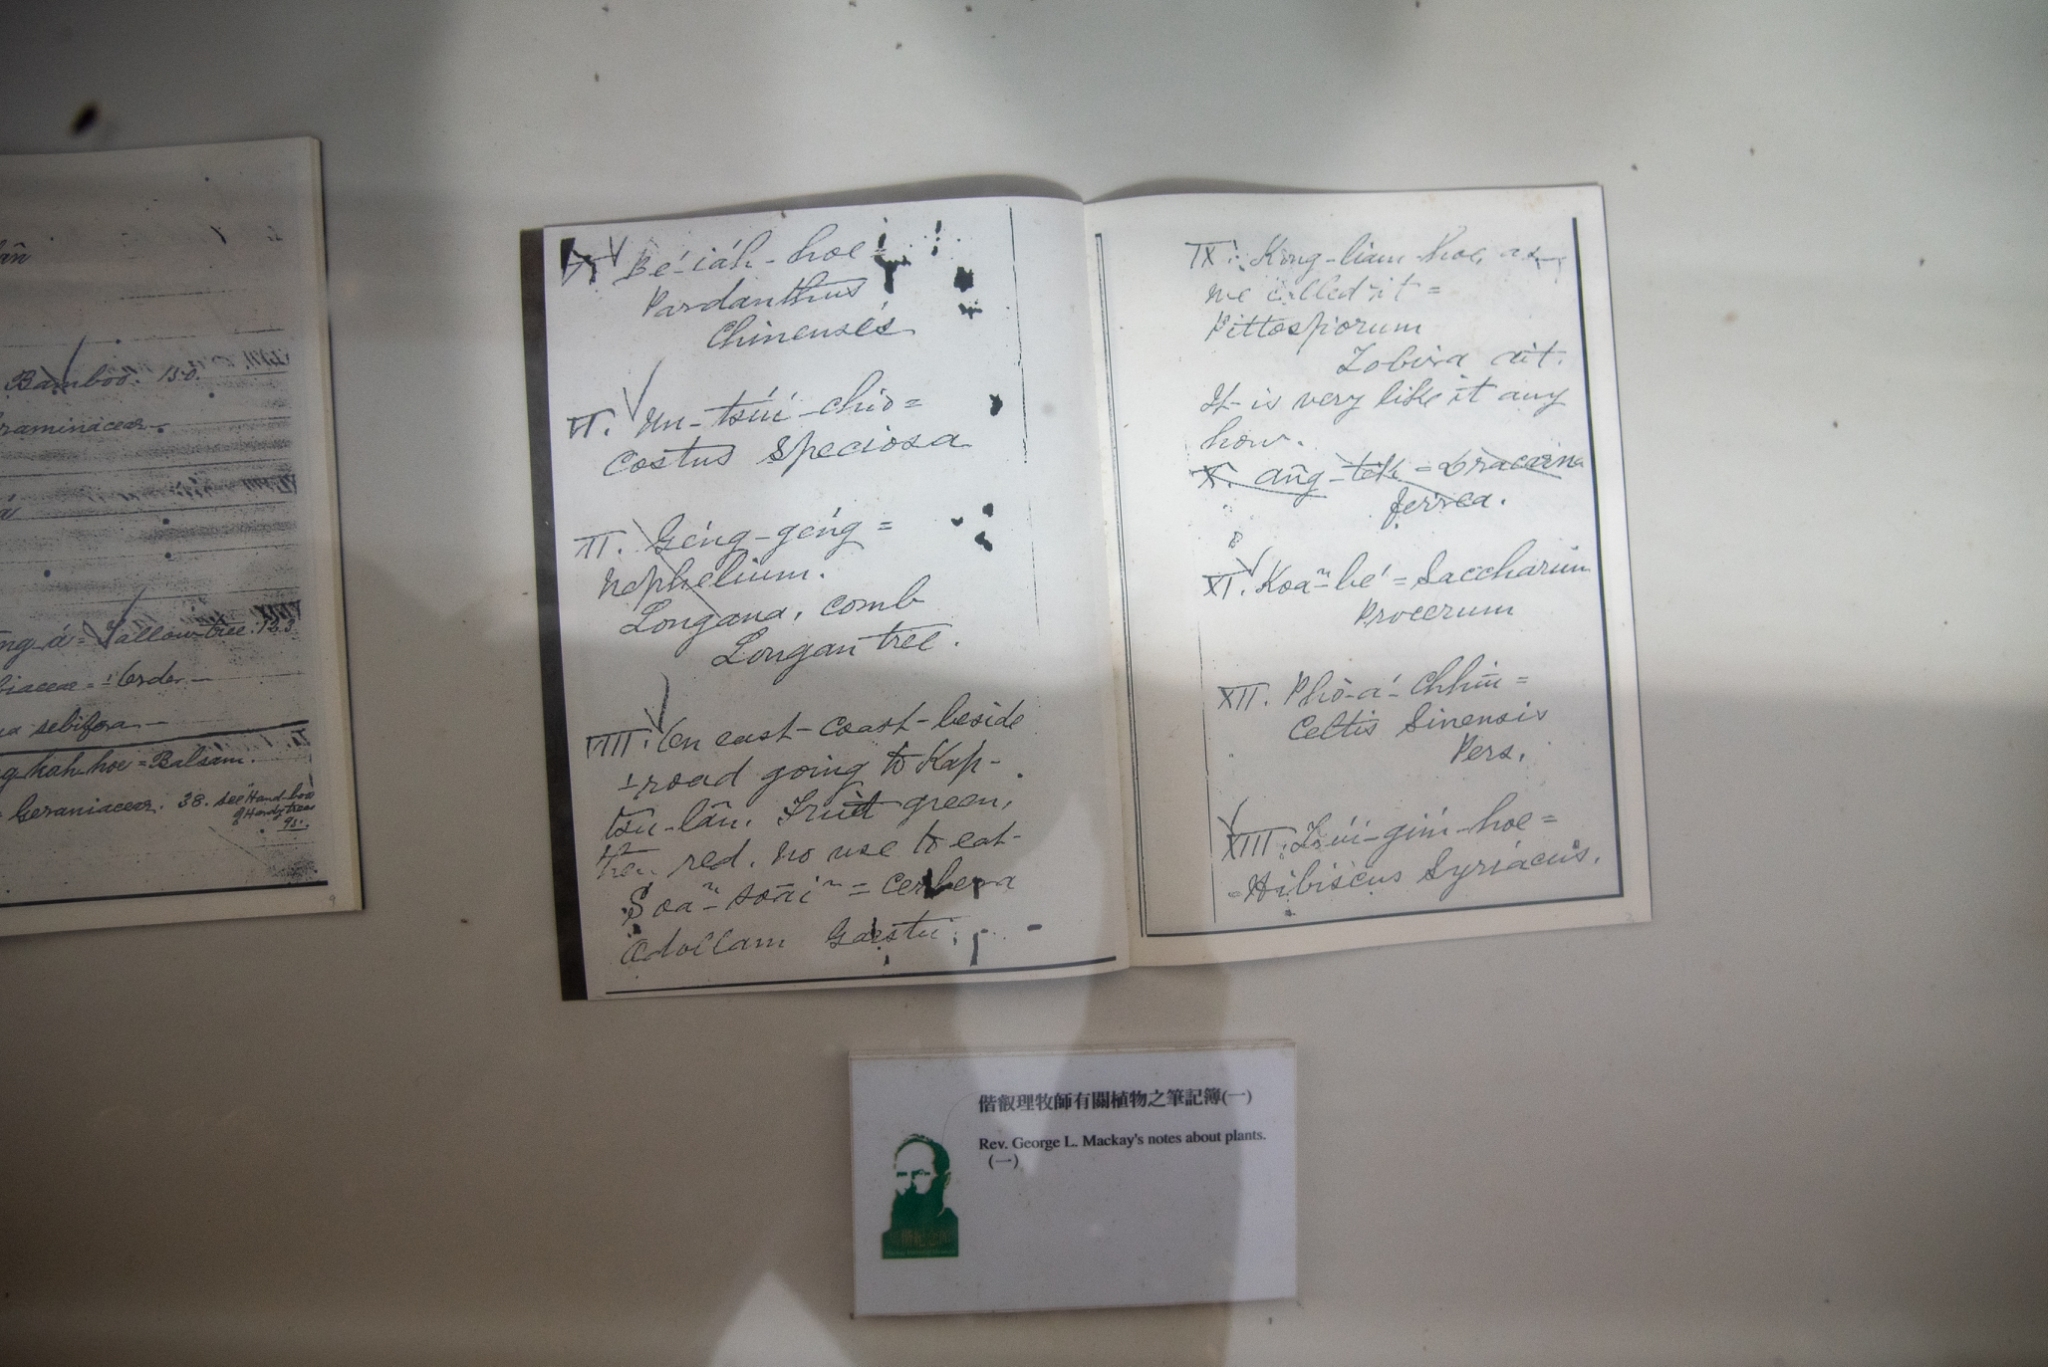 Bamboo. 150.
raminaceae
Tallow-tree. 123
biaceae = Order
sebifera
hoe = Balsam.
Geraniaceae. 38. see "Hand-book
& Hardy trees
95.
V. Bé-iáh-hoe =
Pardanthus
Chinensis
VI. Un-tsúi-chio =
Costus Speciosa
VII. Géng-géng =
Nephelium.
Longana, comb
Longan tree.
VIII. On east-coast-beside
road going to Kap-
tsu-lân. Fruit green,
then red. no use to eat-
Soaⁿ-soāiⁿ = Cerbera
Odollam Gaestu.
IX. Kng-liam-hoe, as
we called it =
Pittosporum
Tobira ait.
It is very like it any
how.
X. âng-tek = Dracaena
ferrea.
XI. Koaⁿ-bé = Saccharum
Procerum
XII. Phò-á-chhiū =
Celtis Sinensis
Pers.
XIII. Tsúi-gím-hoe =
= Hibiscus Syriacus.
偕叡理牧師有關植物之筆記簿(一)
Rev. George L. Mackay's notes about plants.
(一)